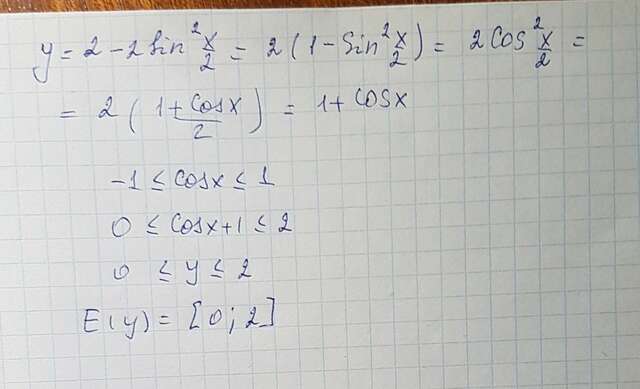 y = 2 - 2 sin² x/2 = 2 (1 - sin² x/2) = 2 cos² x/2 =
= 2 ( (1 + cosx)/2 ) = 1 + cosx
-1 ≤ cosx ≤ 1
0 ≤ cosx+1 ≤ 2
0 ≤ y ≤ 2
E(y) = [0; 2]